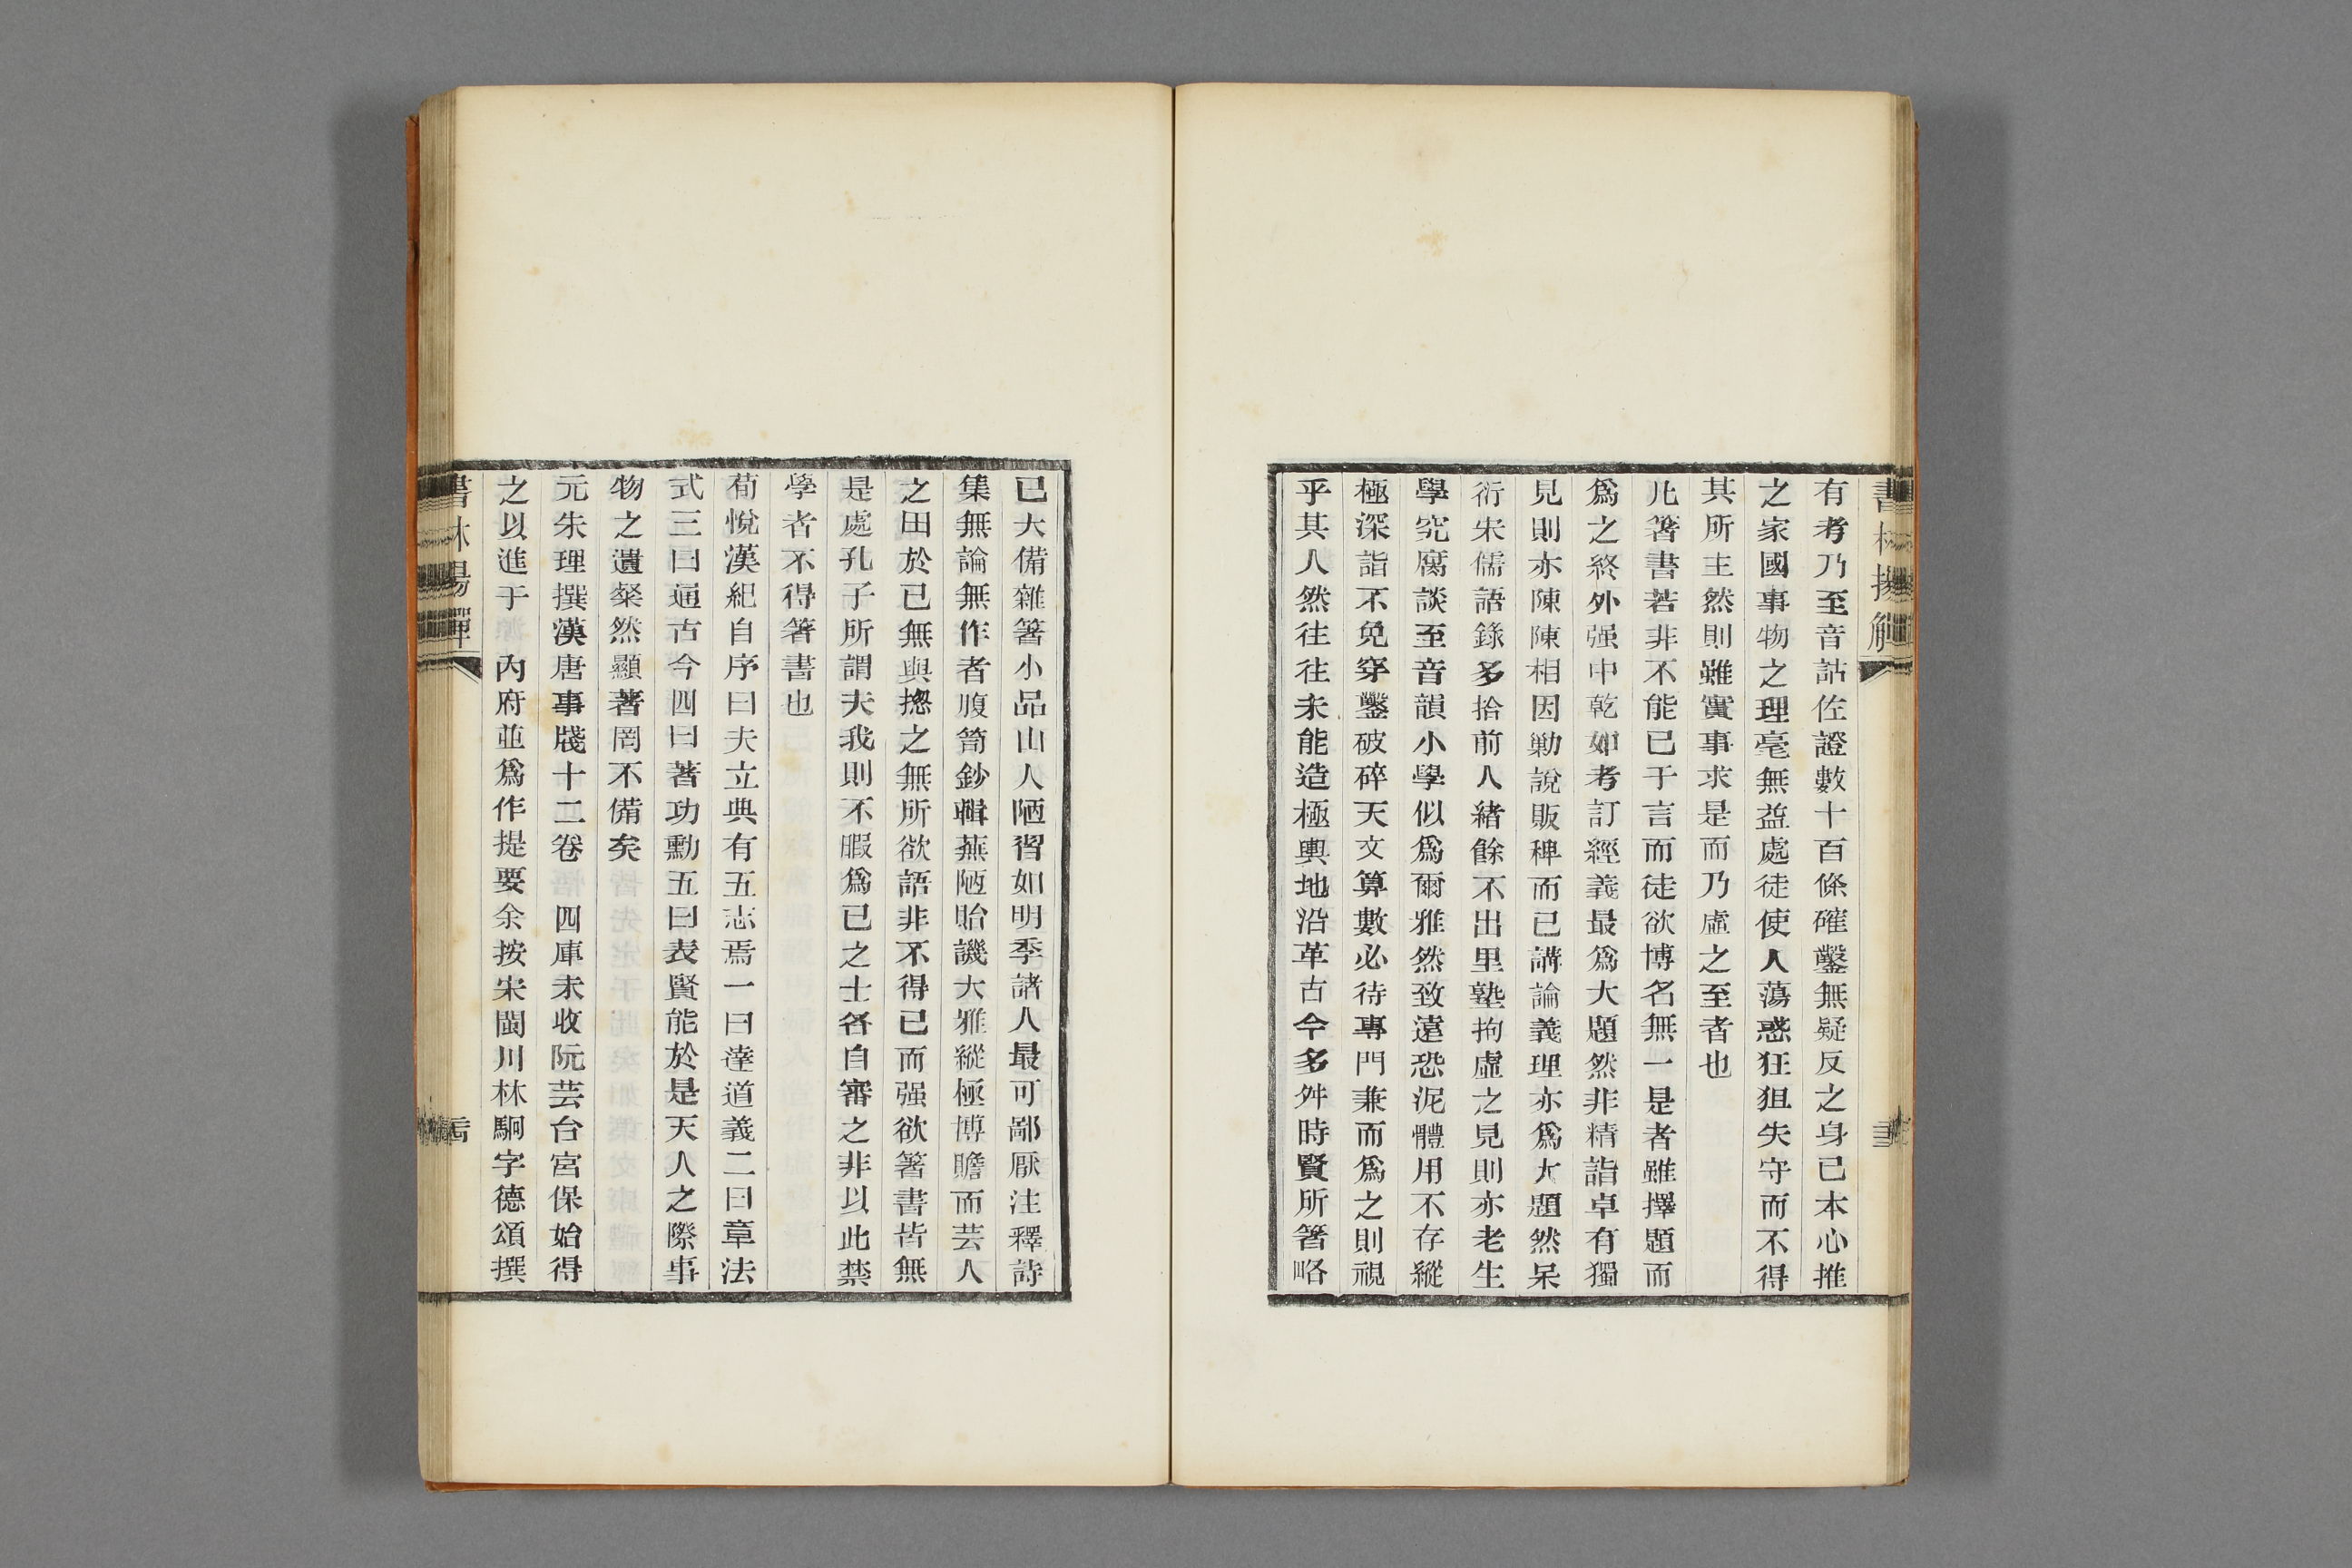 書林揚觶
有考乃至音詁佐證數十百條確鑿無疑反之身己本心推
之家國事物之理毫無益處徒使人蕩惑狂狙失守而不得
其所主然則雖實事求是而乃虛之至者也
凡箸書若非不能已于言而徒欲博名無一是者雖擇題而
爲之終外强中乾如考訂經義最爲大題然非精詣卓有獨
見則亦陳陳相因勦說販稗而已講論義理亦爲大題然呆
衍宋儒語錄多拾前人緒餘不出里塾拘虛之見則亦老生
學究腐談至音韻小學似爲爾雅然致遠恐泥體用不存縱
極深詣不免穿鑿破碎天文算數必待專門兼而爲之則視
乎其人然往往未能造極輿地沿革古今多舛時賢所箸略
已大備雜箸小品山人陋習如明季諸人最可鄙厭注釋詩
集無論無作者腹笥鈔輯蕪陋貽譏大雅縱極博贍而芸人
之田於已無與摠之無所欲語非不得已而强欲箸書皆無
是處孔子所謂夫我則不暇爲已之士各自審之非以此禁
學者不得箸書也
荀悅漢紀自序曰夫立典有五志焉一曰達道義二曰章法
式三曰通古今四曰著功勳五曰表賢能於是天人之際事
物之遺粲然顯著罔不備矣
元朱理撰漢唐事牋十二卷 四庫未收阮芸台宮保始得
之以進于 內府並爲作提要余按宋閩川林駉字德頌撰
書林揚觶